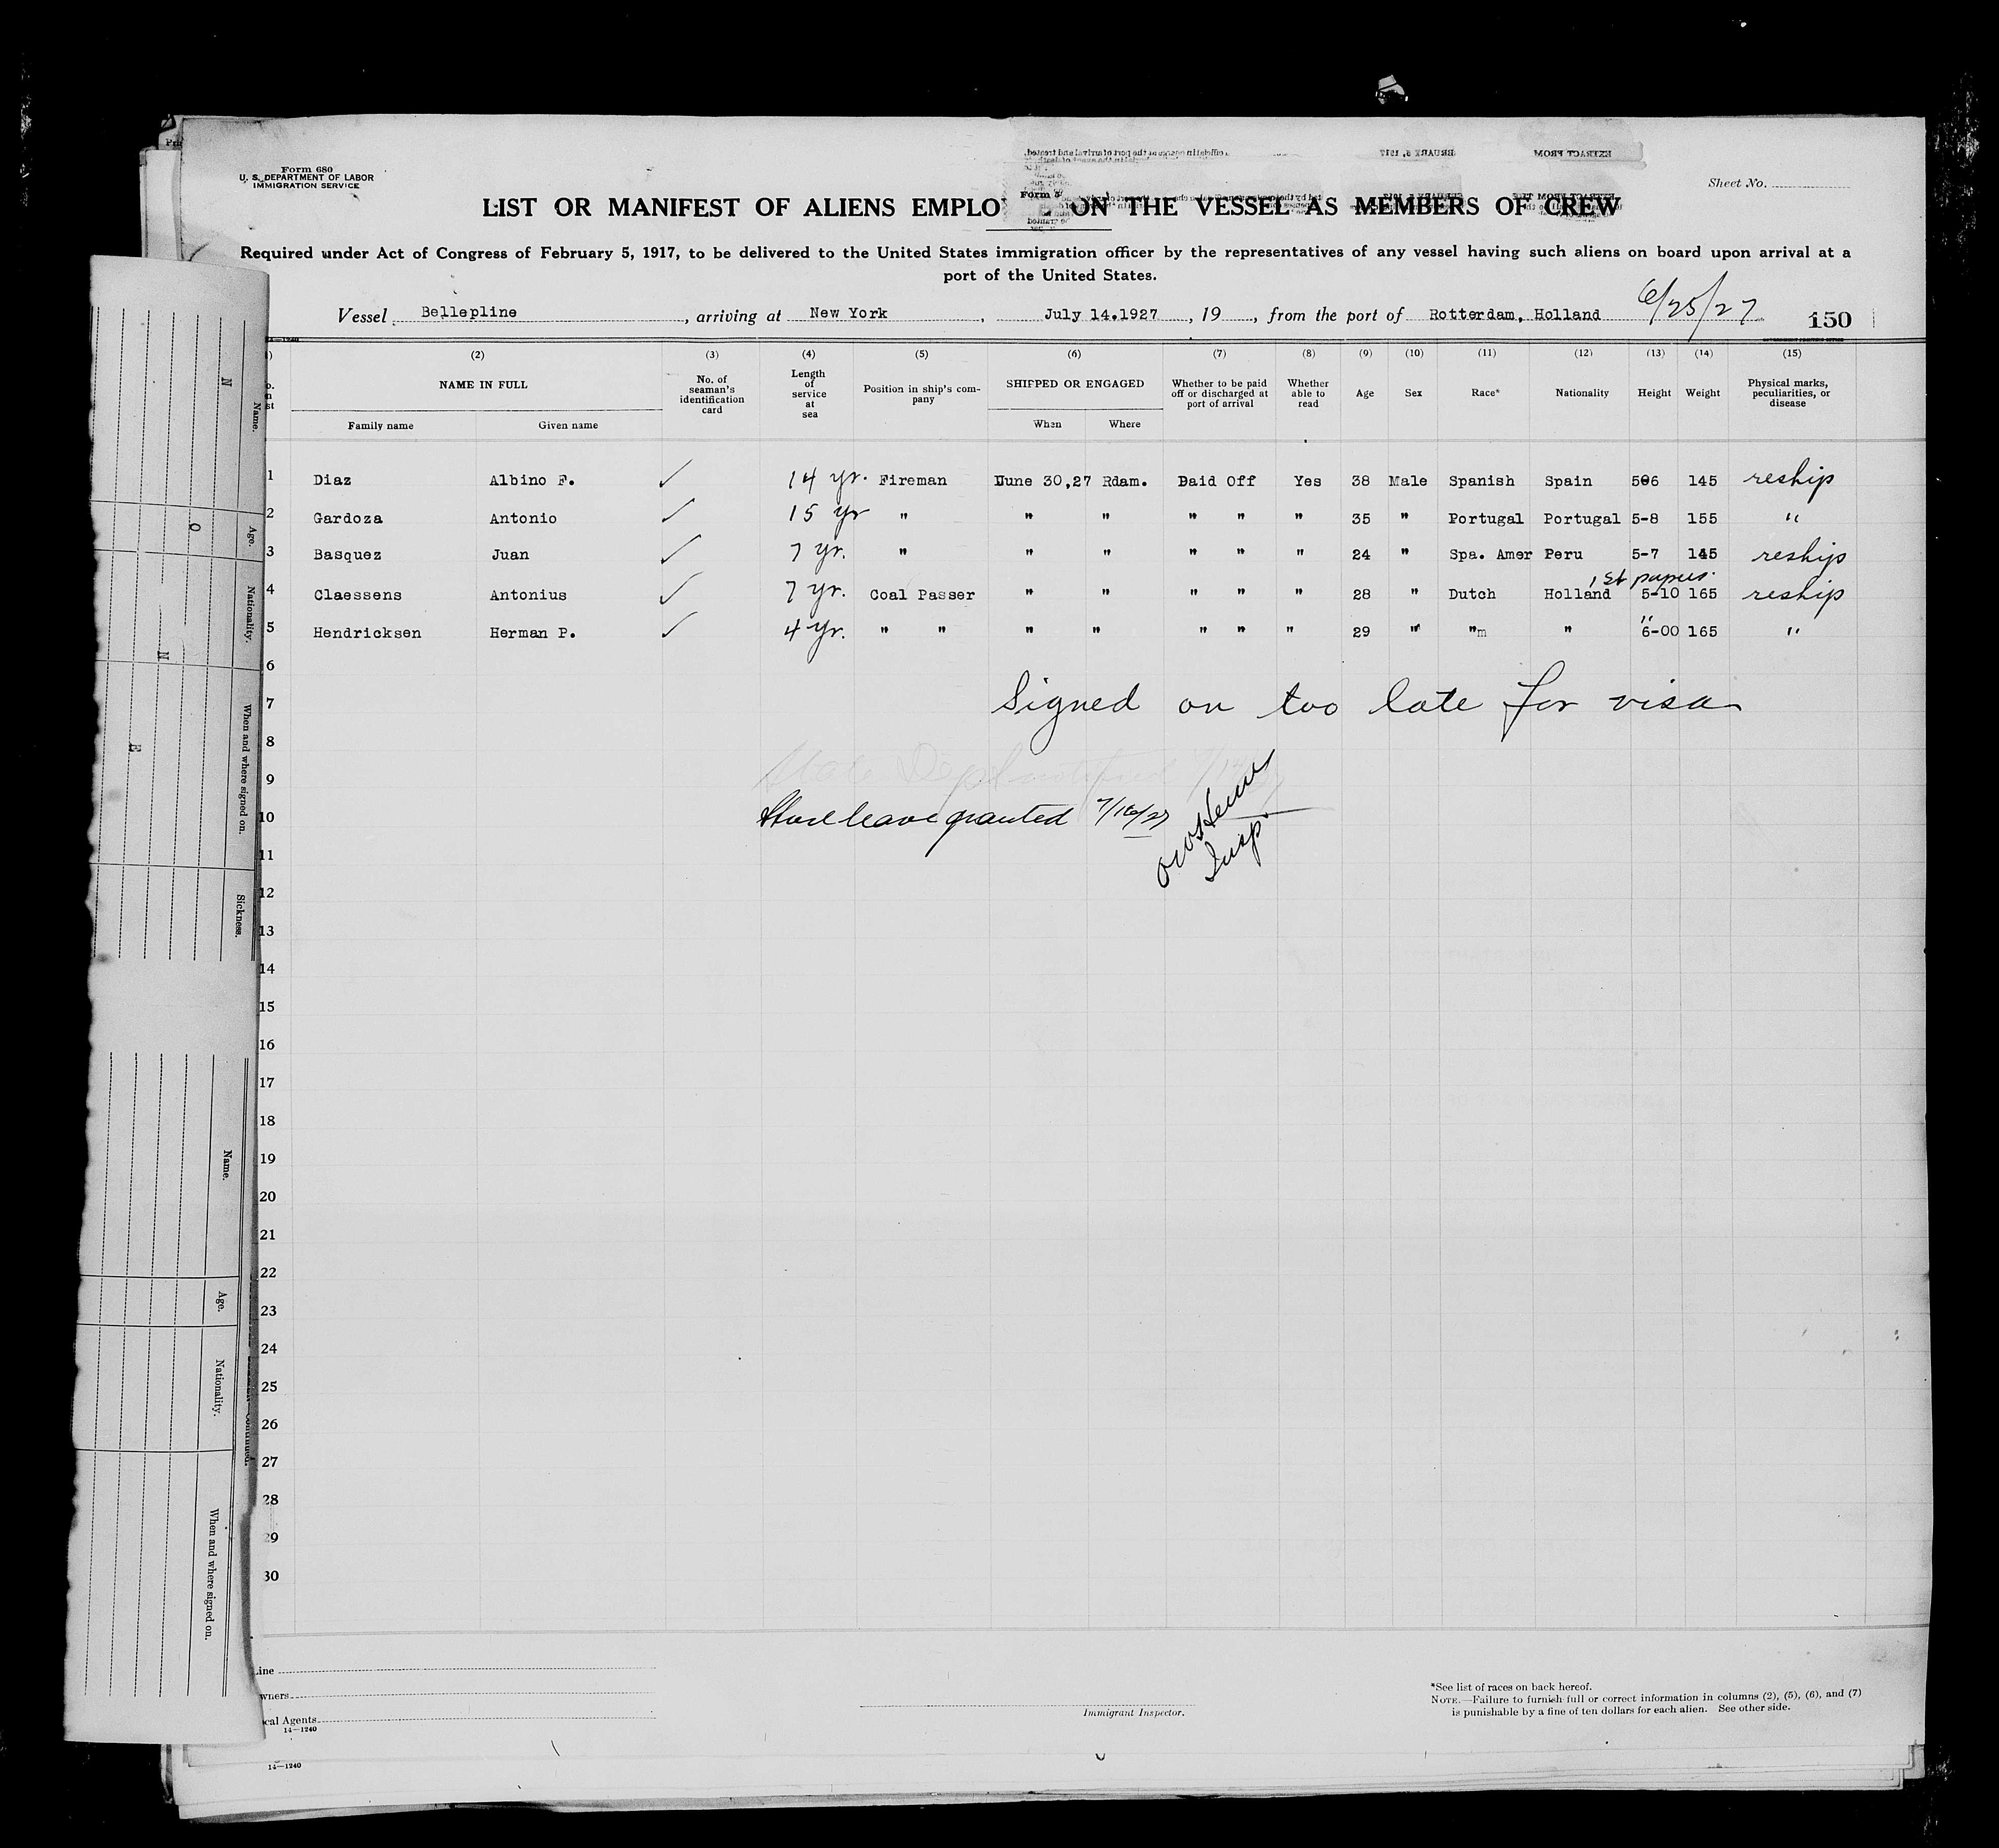 Form 680
U. S. DEPARTMENT OF LABOR
IMMIGRATION SERVICE
Sheet No.
LIST OR MANIFEST OF ALIENS EMPLO ON THE VESSEL AS MEMBERS OF CREW
Required under Act of Congress of February 5, 1917, to be delivered to the United States immigration officer by the representatives of any vessel having such aliens on board upon arrival at a
port of the United States.
Vessel Bellepline, arriving at New York, July 14.1927, 19, from the port of Rotterdam, Holland 6/25/27 150
(2) (3) (4) (5) (6) (7) (8) (9) (10) (11) (12) (13) (14) (15)
NAME IN FULL
Family name Given name
No. of seaman's identification card
Length of service at sea
Position in ship's company
SHIPPED OR ENGAGED
When Where
Whether to be paid off or discharged at port of arrival
Whether able to read
Age Sex Race* Nationality Height Weight
Physical marks, peculiarities, or disease
1 Diaz Albino F. ✓ 14 yr. Fireman June 30,27 Rdam. Paid Off Yes 38 Male Spanish Spain 506 145 reship
2 Gardoza Antonio ✓ 15 yr " " " " " " 35 " Portugal Portugal 5-8 155 "
3 Basquez Juan ✓ 7 yr. " " " " " " 24 " Spa. Amer Peru 5-7 145 reship
1st papers.
4 Claessens Antonius ✓ 7 yr. Coal Passer " " " " " 28 " Dutch Holland 5-10 165 reship
"
5 Hendricksen Herman P. ✓ 4 yr. " " " " " " " 29 " "m " 6-00 165 "
6
7 Signed on too late for visa
8
9 State Dept notified
10 Shore leave granted 7/16/27
Insp.
11
12
13
14
15
16
17
18
19
20
21
22
23
24
25
26
27
28
29
30
Line
wners
cal Agents
14—1240
Immigrant Inspector.
*See list of races on back hereof.
NOTE.—Failure to furnish full or correct information in columns (2), (5), (6), and (7)
is punishable by a fine of ten dollars for each alien. See other side.
14—1240
Name.
Age.
Nationality.
When and where signed on.
Sickness.
N
O
N
E
Name.
Age.
Nationality.
When and where signed on.